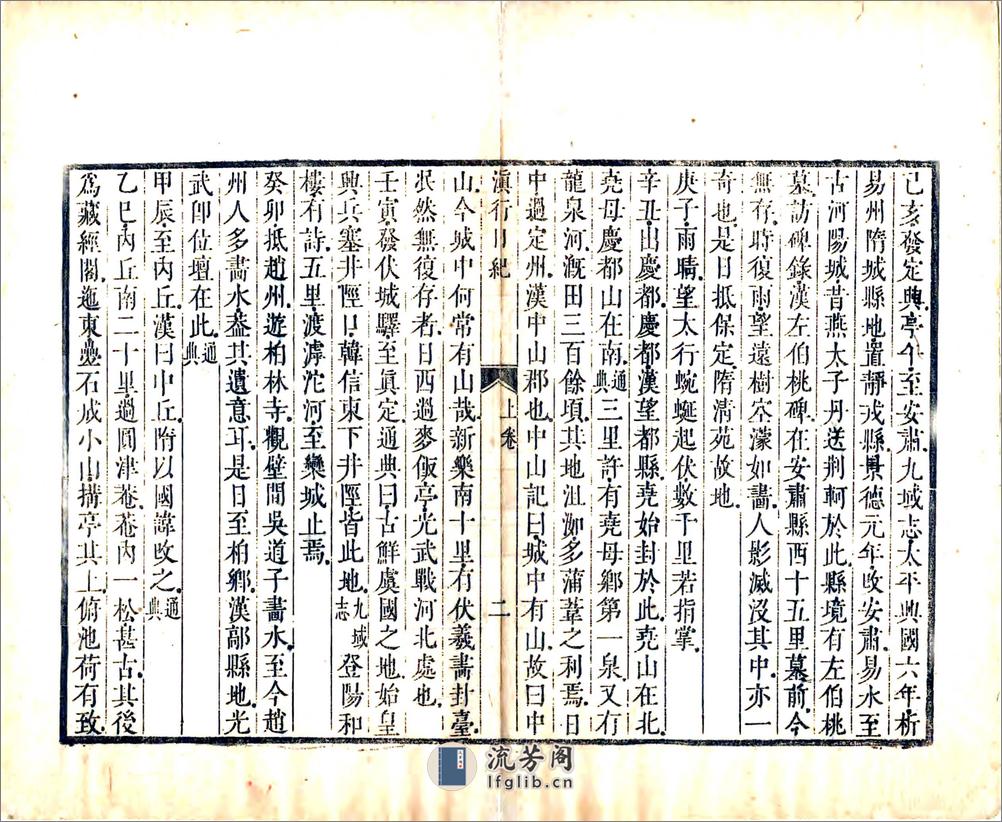 己亥發定興亭午至安肅九域志太平興國六年析
易州隋城縣地置靜戎縣景德元年改安肅易水至
古河陽城昔燕太子丹送荆軻於此縣境有左伯桃
墓訪碑錄漢左伯桃碑在安肅縣西十五里墓前今
無存時復雨望遠樹空濛如畵人影滅沒其中亦一
奇也是日抵保定隋清苑故地
庚子雨晴望太行蜿蜒起伏數千里若指掌
辛丑山慶都慶都漢望都縣堯始封於此堯山在北
堯母慶都山在南通典三里許有堯母鄉第一泉又有
龍泉河漑田三百餘頃其地沮洳多蒲葦之利焉日
中過定州漢中山郡也中山記曰城中有山故曰中
滇行日紀 上卷 二
山今城中何常有山哉新樂南十里有伏羲畵封臺
泯然無復存者日西過麥飯亭光武戰河北處也
壬寅發伏城驛至眞定通典曰古鮮虞國之地始皇
興兵塞井陘口韓信東下井陘皆此地九域志登陽和
樓有詩五里渡滹沱河至欒城止焉
癸卯抵趙州遊柏林寺觀壁間吳道子畵水至今趙
州人多畵水葢其遺意耳是日至柏鄉漢鄗縣地光
武卽位壇在此通典
甲辰至內丘漢曰中丘隋以國諱改之通典
乙巳內丘南二十里過圓津菴菴內一松甚古其後
爲藏經閣迤東壘石城小山搆亭其上俯池荷有致
流芳阁
lfglib.cn